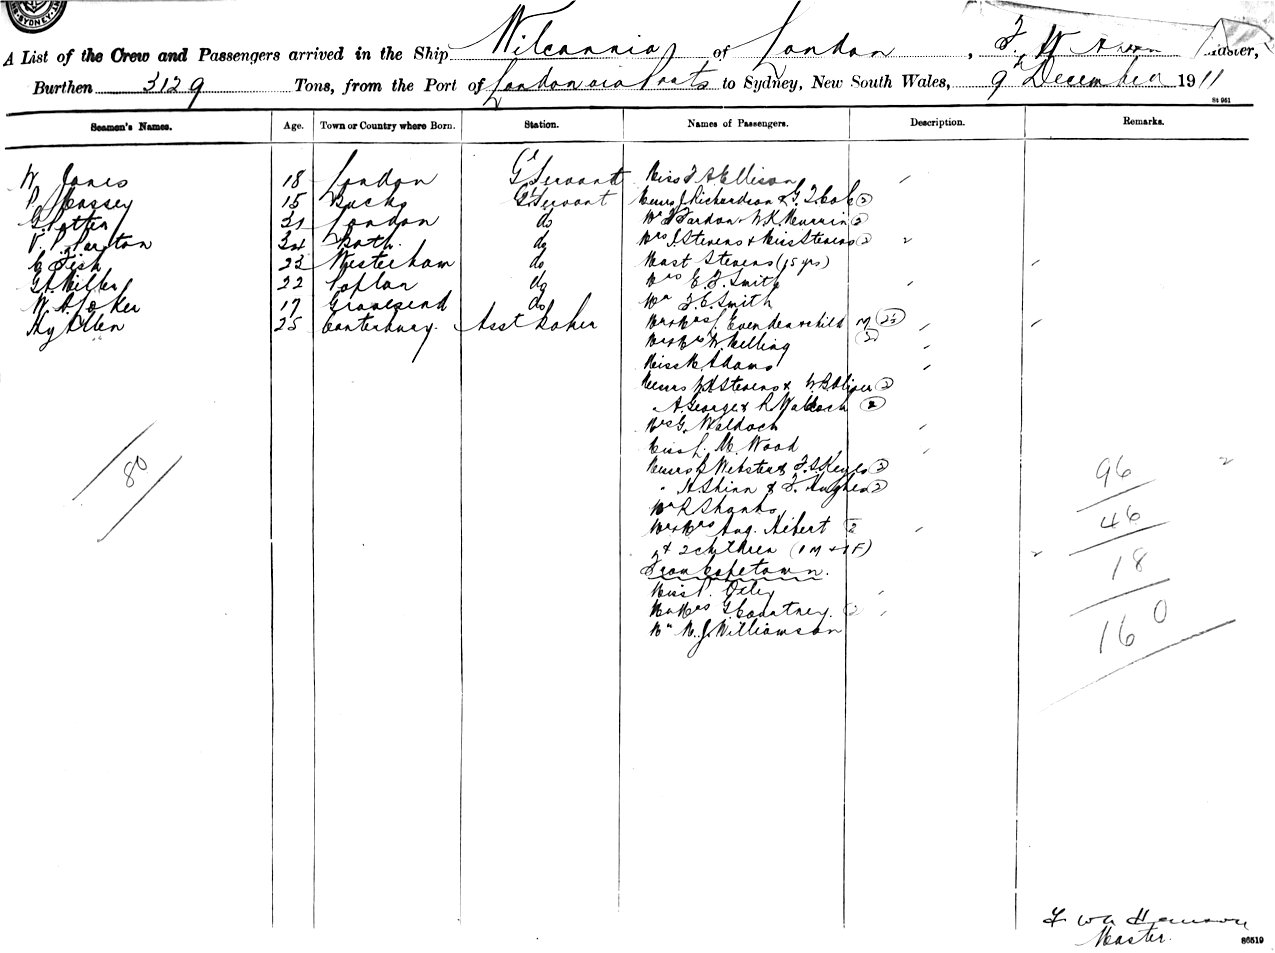 SYDNEY
A List of the Crew and Passengers arrived in the Ship Wilcannia of London, F. W Master,
Burthen 3129 Tons, from the Port of London via Ports to Sydney, New South Wales, 9th December 1911
84 961
Seamen's Names. Age. Town or Country where Born. Station. Names of Passengers. Description. Remarks.
W Jones 18 London Gl Servant Miss F A Ellison
P Massey 15 Bucks Gl Servant Messrs J Richardson & G. T. Cole (2)
G Potter 31 London do Mr F Fardon W. K. (2)
V. P. 34 Bath. do Mrs J. Stevens & Miss Stevens (2)
C Fish 23 Westerham do Mast Stevens (15 yrs)
G A Miller 22 Poplar do Mrs E. F. Smith
W. A. 17 Gravesend do Mr F. C. Smith
Hy Allen 25 Canterbury. Asst Baker Mr & Mrs J. Evenden & child M (2½)
Mr & Mrs W. Melling (2)
Miss M. Adams
Messrs J. A. Stevens & W. B. Oliver (2)
" A. George & R Waldoch (2)
Mrs G. Waldoch
Miss L. M. Wood
Messrs J Webster & F. S. Keyes (2)
" A. Shinn & F. Hughes (2)
Mr R Shanks
Mr & Mrs Aug. Hibert 2
& 2 children (1 M + 1 F)
From Capetown.
Miss P. Oxley
Mr & Mrs G Courtney. (2)
Mr N. J. Williamson
80
96
46
18
160
F Wm
Master.
86519